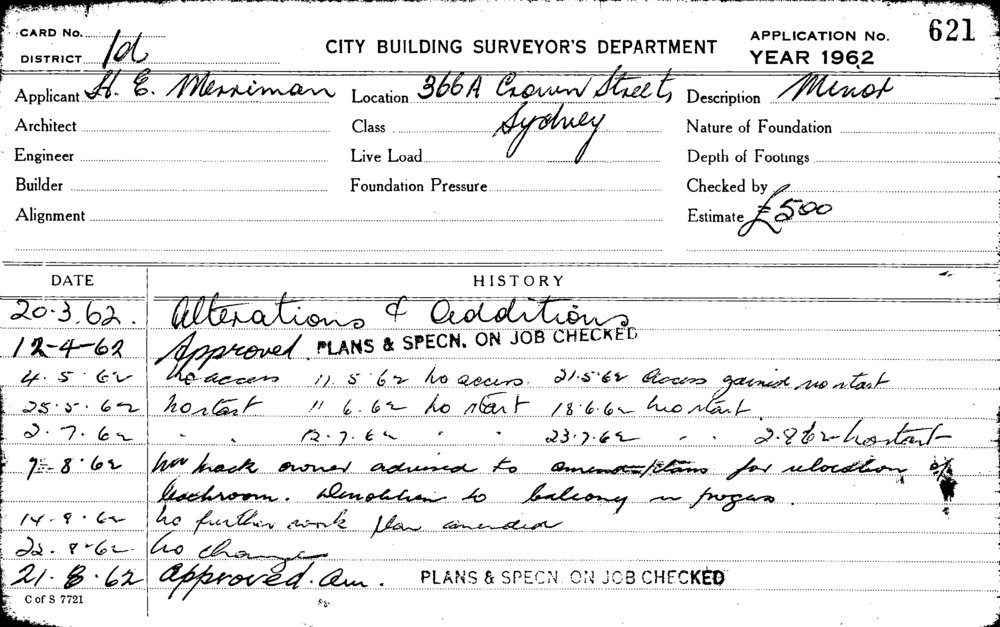 CARD No.
DISTRICT 1d
CITY BUILDING SURVEYOR'S DEPARTMENT
APPLICATION No. 621
YEAR 1962
Applicant H. E. Merriman Location 366A Crown Street, Description Minor
Architect Class Sydney Nature of Foundation
Engineer Live Load Depth of Footings
Builder Foundation Pressure Checked by
Alignment Estimate £500
DATE HISTORY
20.3.62. Alterations & additions
12-4-62 Approved. PLANS & SPECN. ON JOB CHECKED
4.5.62 no access 11.5.62 no access. 21.5.62 access gained no start
25.5.62 no start 11 6.62 no start 18.6.62 no start.
2.7.62 " " 12.7.62 " " 23.7.62 " " 2.8.62 no start
7-8.62 owner advised to amend plans for relocation of
bathroom. Demolition to balcony in progress.
14.8.62 no further work plan amended
22.8.62 no change
21.8.62 approved. am. PLANS & SPECN. ON JOB CHECKED
C of S 7721